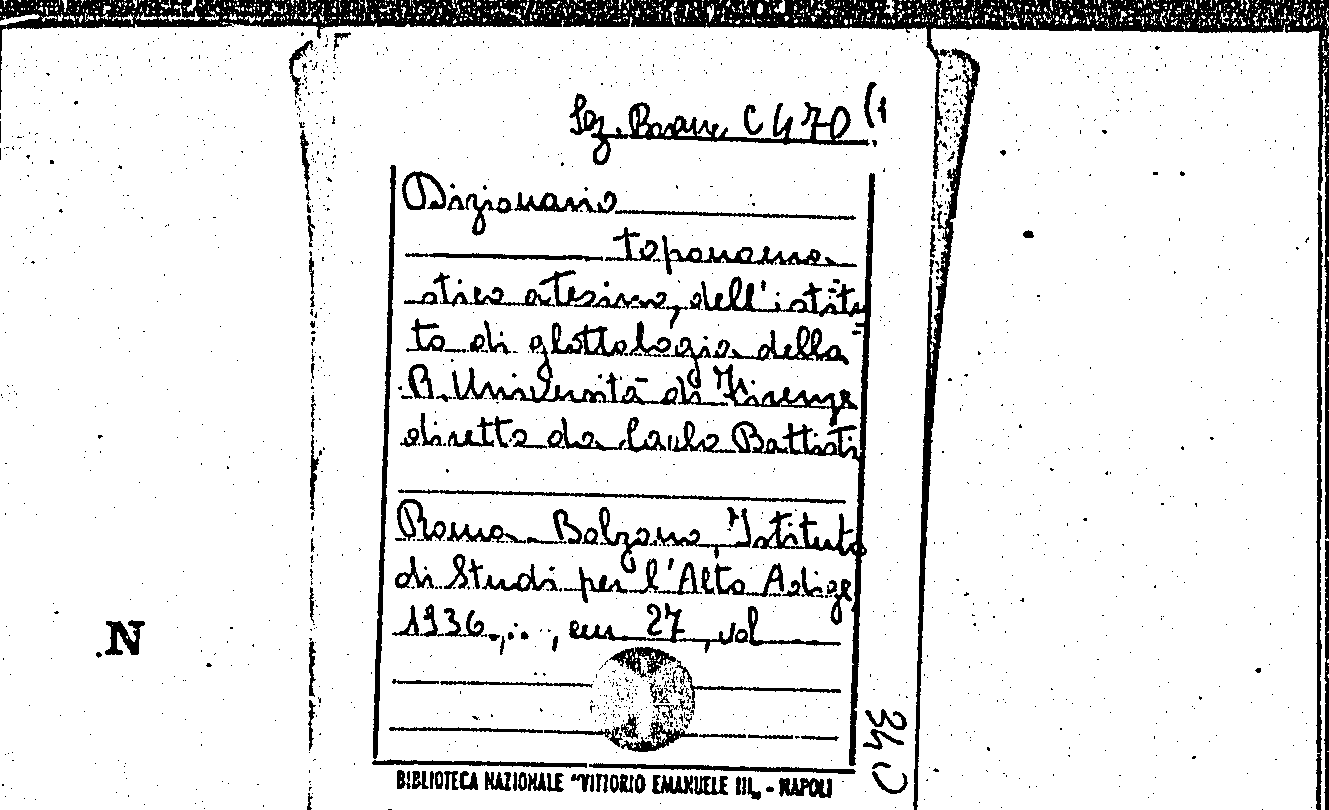 Sez. Branc. C 470 (1
Dizionario
toponoma
stico atesino, dell'istitu=
to di glottologia della
R. Università di Firenze
diretto da Carlo Battisti
Roma-Bolzano, Istituto
di Studi per l'Alto Adige,
1936-..., cm. 27, vol
N
340
BIBLIOTECA NAZIONALE "VITTORIO EMANUELE III„ - NAPOLI